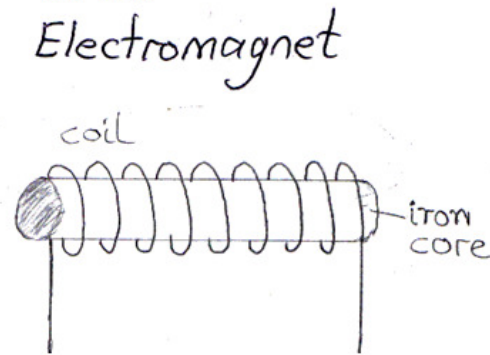 Electromagnet
coil
iron
core